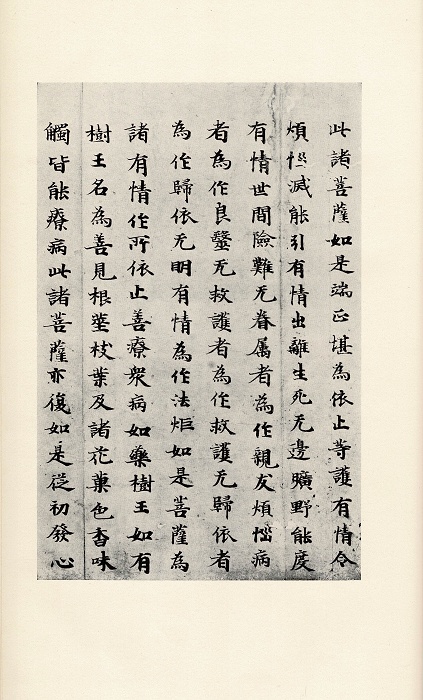 此諸菩薩如是端正堪為依止等護有情令
煩惱滅能引有情出離生死无邊曠野能度
有情世間險難无眷属者為作親友煩惱病
者為作良毉无救護者為作救護无歸依者
為作歸依无明有情為作法炬如是菩薩為
諸有情作所依止善療衆病如藥樹王如有
樹王名為善見根莖枝葉及諸花菓色香味
觸皆能療病此諸菩薩亦復如是從初發心